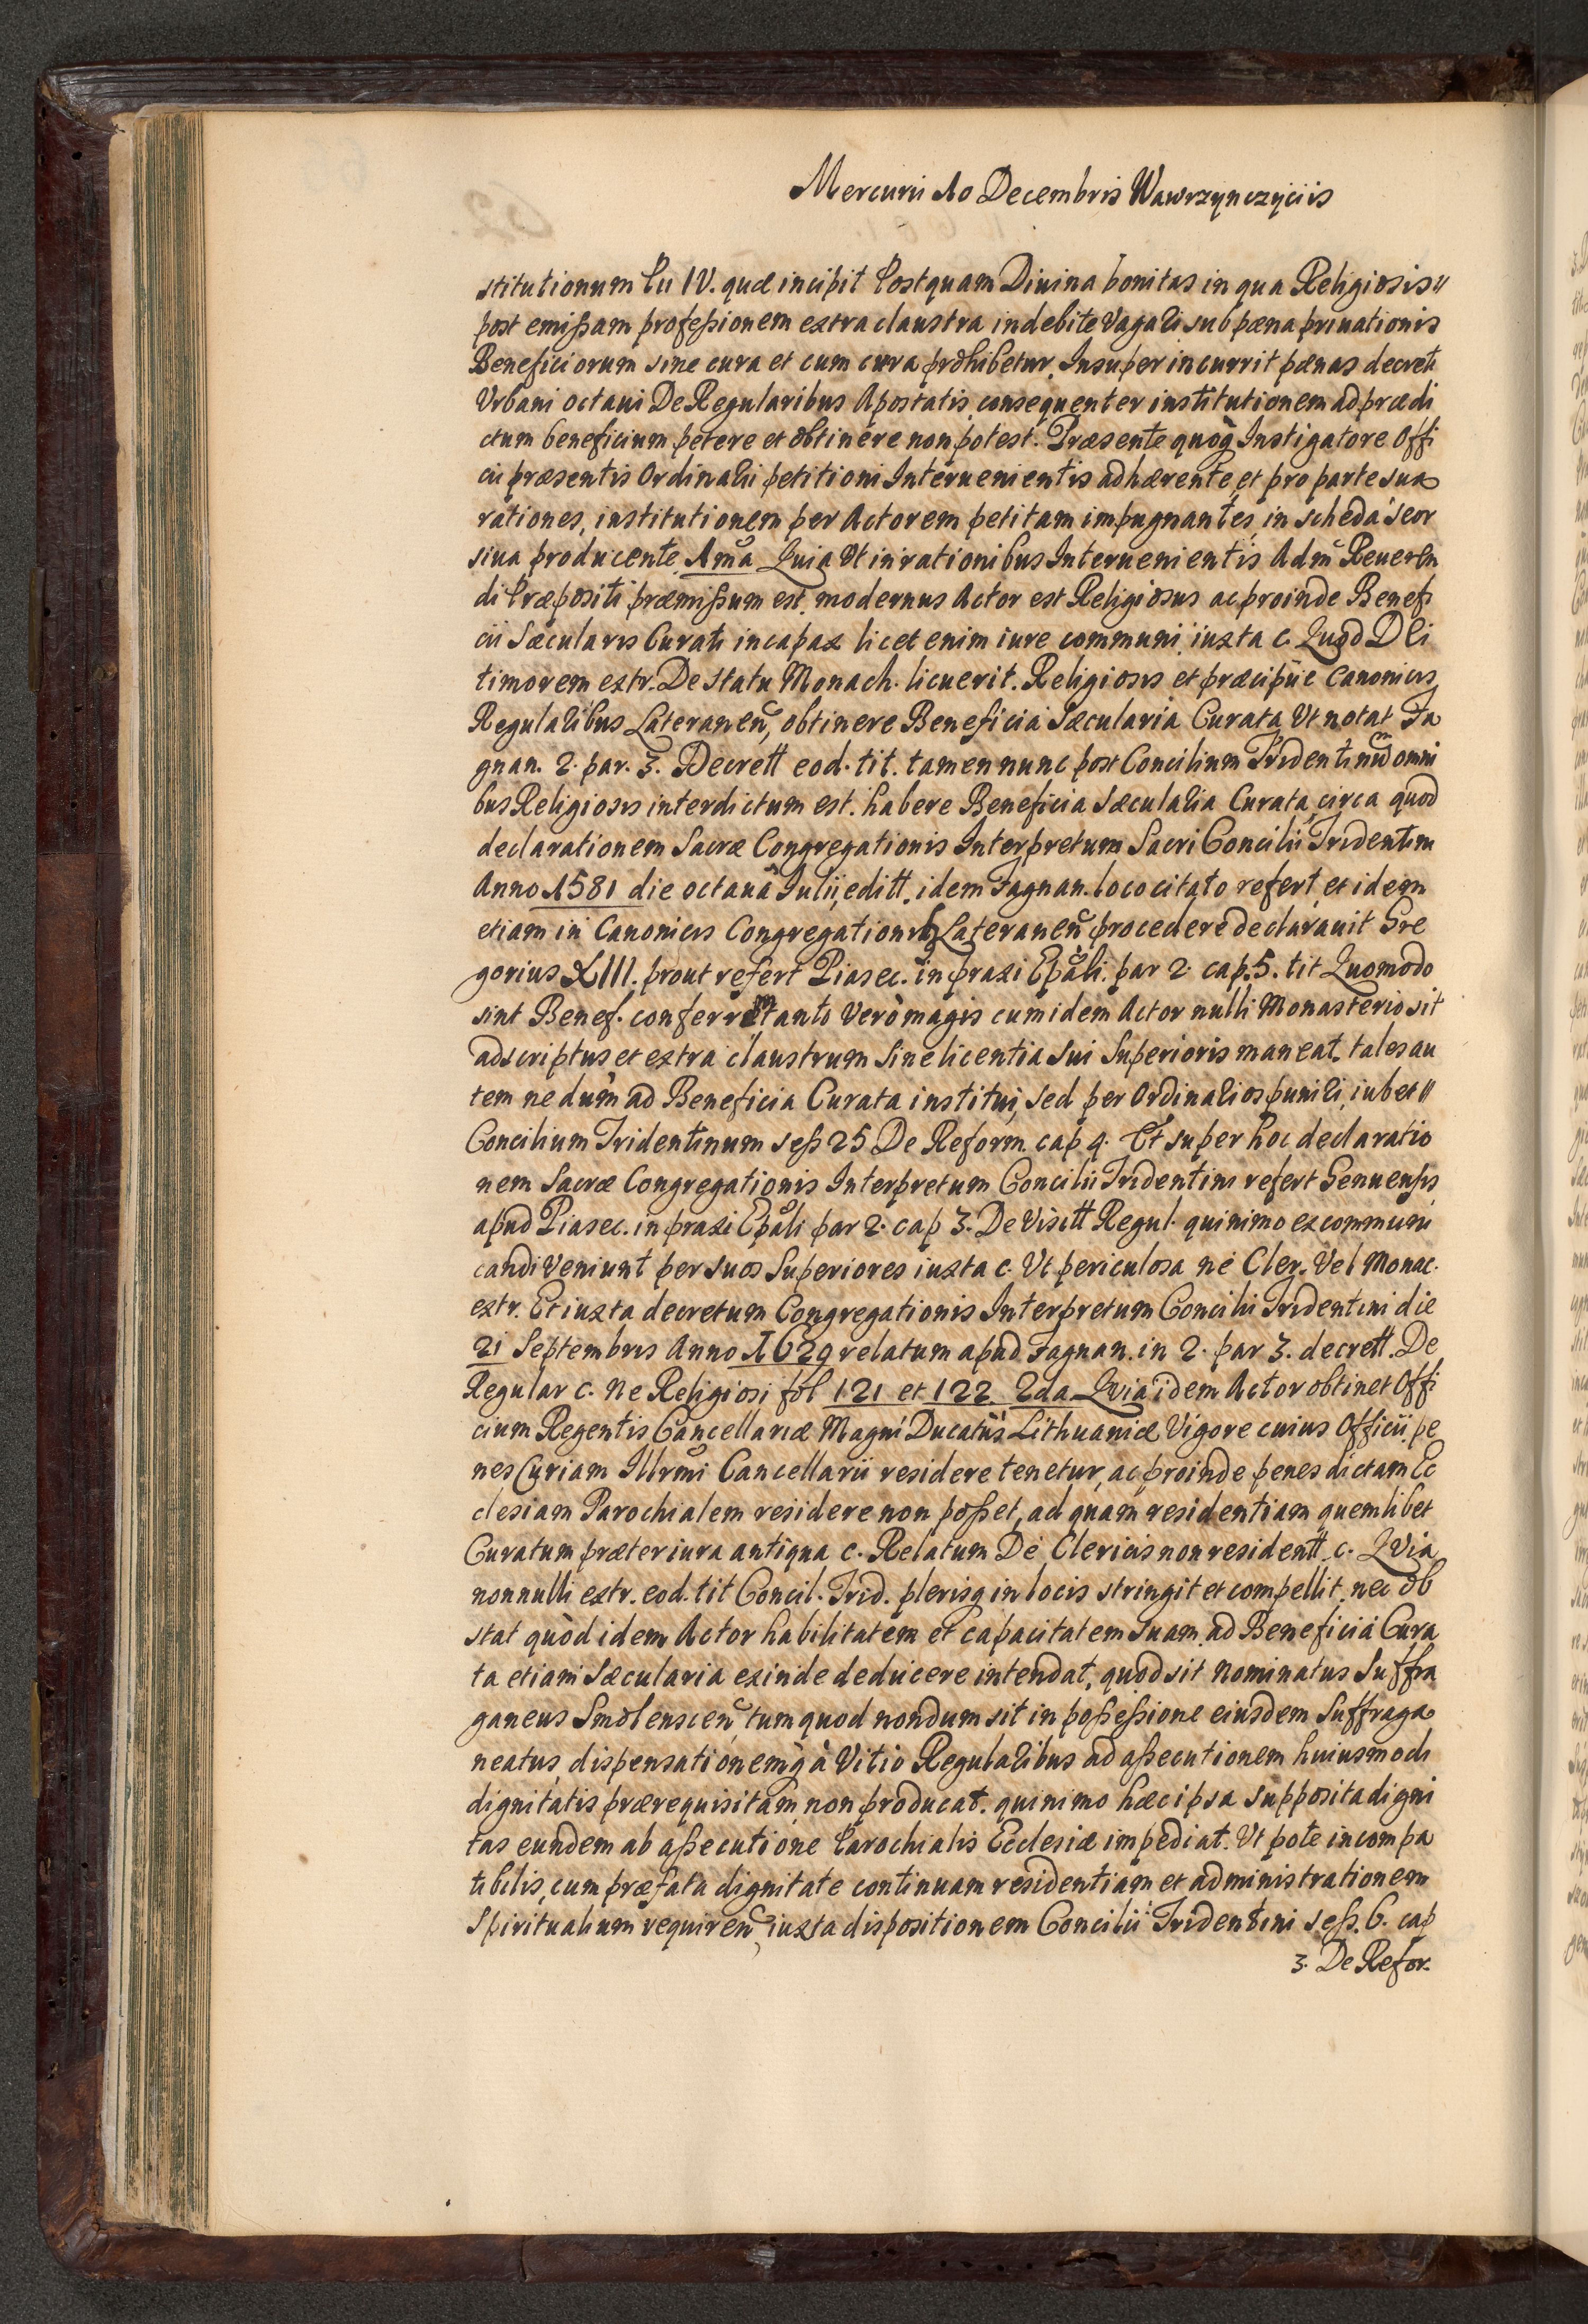 Mercurii 10 Decembris Wawrzynczyciis
stitutionum Pii IV. quæ incipit Postquam Diuina bonitas in qua Religiosis
post emißam profeßionem extra claustra indebite Vagari sub pæna priuationis
Beneficiorum sine cura et cum cura prohibetur. Insuper incurrit pænas decreti
Vrbani octaui De Regularibus Apostatis, consequenter institutionem ad prædi
ctum beneficium petere et obtinere non potest. Præsente quoq Instigatore Offi
cii præsentis Ordinarii petitioni Interuenientis adhærente, et pro parte sua
rationes, institutionem per Actorem petitam impugnantes, in scheda seor
siua producente. 1ma Quia Vt in rationibus Interuenientis Adm Reueren
di Præpositi præmißum est, modernus Actor est Religiosus ac proinde Benefi
cii Sæcularis Curati incapax licet enim iure communi, iuxta c. Quod Dei
timorem extr. De statu Monach. licuerit. Religiosis et præcipue Canonicis
Regularibus Lateranen, obtinere Beneficia Sæcularia Curata, Vt notat Fa
gnan. 2. par. 3. Decrett eod. tit. tamen nunc post Concilium Tridentinum omni
bus Religiosis interdictum est. habere Beneficia Sæcularia Curata, circa quod
declarationem Sacræ Congregationis Interpretum Sacri Concilii Tridentini
Anno 1581 die octaua Iulii, editt. idem Fagnan. loco citato refert, et idem
etiam in Canonicis Congregationis Lateranen procedere declarauit Gre
gorius XIII. prout refert Piasec. in praxi Epali. par 2. cap. 5. tit Quomodo
sint Benef. conferre tanto Vero magis cum idem Actor nulli Monasterio sit
adscriptus et extra claustrum sine licentia sui Superioris maneat. tales au
tem nedum ad Beneficia Curata institui, sed per Ordinarios puniri, iubet
Concilium Tridentinum seß 25 De Reform. cap 4. Et super hoc declaratio
nem Sacræ Congregationis Interpretum Concilii Tridentini refert Genuensis
apud Piasec. in praxi Epali par 2. cap 3. De Visitt Regul. quinimo excommuni
candi Veniunt per suos Superiores iuxta c. Vt periculosa ne Cler. Vel Monac.
extr. Et iuxta decretum Congregationis Interpretum Concilii Tridentini die
21 Septembris Anno 1629 relatum apud Fagnan. in 2. par 3. decrett. De
Regular c. Ne Religiosi fol 121 et 122. 2da Quia idem Actor obtinet Offi
cium Regentis Cancellariæ Magni Ducatus Lithuaniæ Vigore cuius Officii. pe
nes Curiam Illrmi Cancellarii residere tenetur, ac proinde penes dictam Ec
clesiam Parochialem residere non poßet, ad quam residentiam quemlibet
Curatum præter iura antiqua c. Relatum De Clericis non residentt. c. Quia
nonnulli extr. eod. tit Concil. Trid. plerisq in locis stringit et compellit. nec ob
stat quòd idem Actor habilitatem et capacitatem suam ad Beneficia Cura
ta etiam Sæcularia exinde deducere intendat, quod sit nominatus Suffra
ganeus Smolenscen tum quod nondum sit in poßeßione eiusdem Suffraga
neatus, dispensationemq à Vitio Regularibus ad aßecutionem huiusmodi
dignitatis prærequisitam, non producat. quinimo hæc ipsa supposita digni
tas eundem ab aßecutione Parochialis Ecclesiæ impediat. Vt pote incompa
tibilis, cum præfata dignitate continuam residentiam et administrationem
Spiritualium requiren iuxta dispositionem Concilii Tridentini seß. 6. cap
3. De Refor.